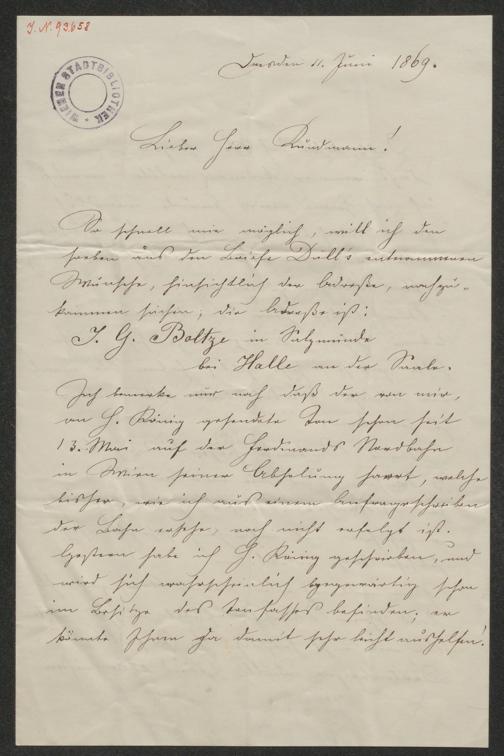 J. N. 93658
WIENER STADTBIBLIOTHEK
Dresden 11. Juni 1869.
Lieber Herr Kundmann!
So schnell mir möglich, will ich den
soeben aus den Briefe Doll's entnommenen
Wünsche, hinsichtlich der Adresse, nachzu-
kommen suchen; die Adresse ist:
J. G. Boltze in Salzmünde
bei Halle an der Saale.
Ich bemerke nur noch daß der von mir,
an H. König gesendete Ton schon seit
13. Mai auf der Ferdinands Nordbahn
in Wien seiner Abholung harrt, welche
bisher, wie ich aus einem Anfrageschreiben
der Bahn ersehe, noch nicht erfolgt ist.
Gestern habe ich H. König geschrieben, und
wird sich wahrscheinlich gegenwärtig schon
im Besitze des Tonfasses befinden; er
könnte Ihnen ja damit sehr leicht aushelfen!